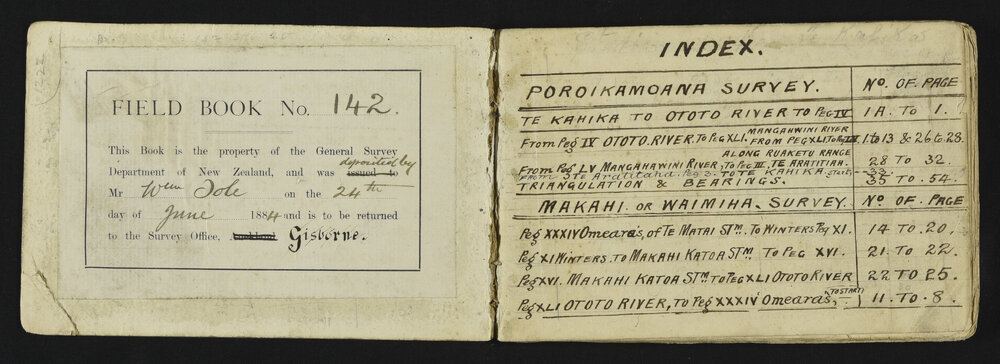 FIELD BOOK No. 142.
This Book is the property of the General Survey
deposited by
Department of New Zealand, and was issued to
Mr Wm Tole on the 24th
day of June 1884 and is to be returned
to the Survey Office, Gisborne.
INDEX.
POROIKAMOANA SURVEY. No. OF. PAGE
TE KAHIKA TO OTOTO RIVER TO PEG IV 1A. TO 1.
From Peg IV OTOTO.RIVER.To Peg XLI, MANGAHWINI RIVER FROM PEG XLI To Peg 1 to 13 & 26 to 28.
ALONG RUAKETU RANGE
From Peg LV MANGAHAWINI RIVER, To Peg III, TE ARATITIAH. 28 TO 32.
From STE Aratitaha Peg 3. TO TE KAHIKA start, 33
TRIANGULATION & BEARINGS. 35 TO. 54.
MAKAHI. OR WAIMIHA. SURVEY. No. OF. PAGE
Peg XXXIV Omeara's, of TE MATAI STm. To WINTERS Peg XI. 14 TO. 20.
Peg XI WINTERS. TO MAKAHI KATOA STm TO PEG XVI. 21 TO. 22.
Peg XVI. MAKAHI KATOA STm TO Peg XLI OTOTO RIVER 22 TO 25.
Peg XLI OTOTO RIVER, to Peg XXXIV Omeara's, TO START 11. TO. 8.